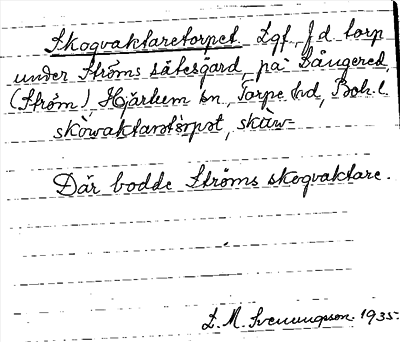 Skogvaktaretorpet Lgf., f d torp
under Ströms sätesgård, på Långered,
(Ström) Hjärtum sn, Torpe hd, Boh. l.
skòwaktarətòrpət, skàw-
Där bodde Ströms skogvaktare.
L. M. Svenungsson 1935.